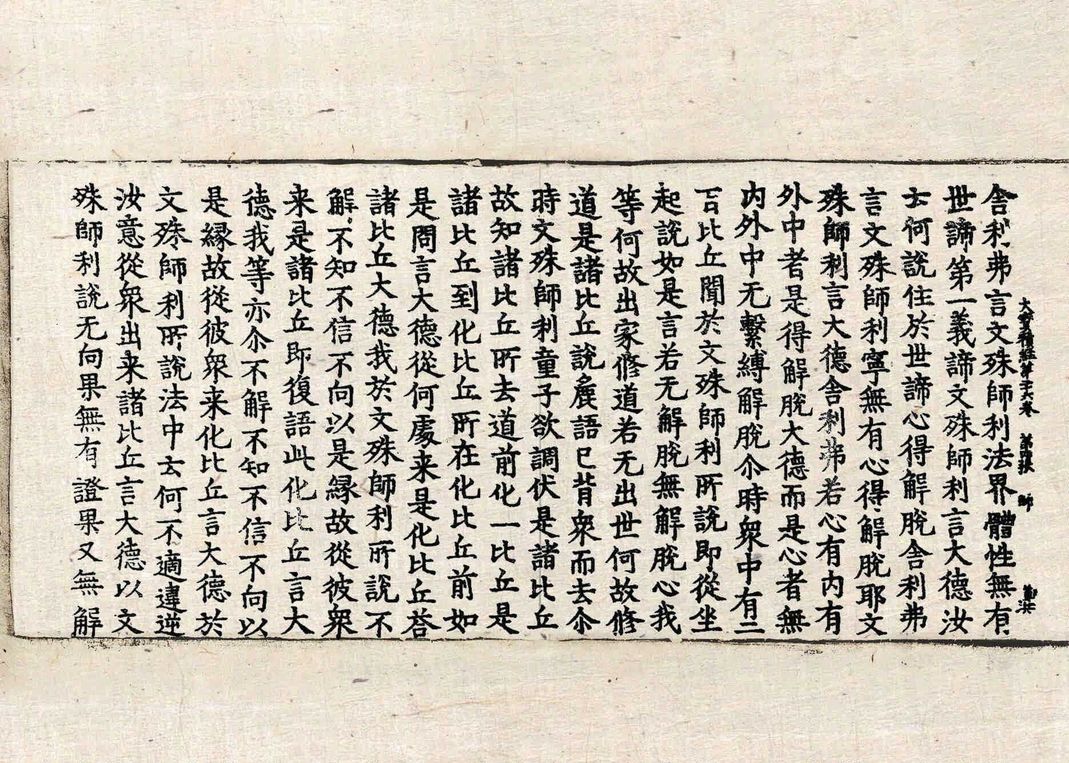 大寶積經第二十六卷 師
舍利弗言文殊師利法界體性無有
世諦第一義諦文殊師利言大德汝
云何說住於世諦心得解脫舍利弗
言文殊師利寧無有心得解脫耶文
殊師利言大德舍利弗若心有內有
外中者是得解脫大德而是心者無
內外中无繫縛解脫尒時衆中有二
百比丘聞於文殊師利所說即從坐
起說如是言若无解脫無解脫心我
等何故出家修道若无出世何故修
道是諸比丘說麁語已背衆而去尒
時文殊師利童子欲調伏是諸比丘
故知諸比丘所去道前化一比丘是
諸比丘到化比丘所在化比丘前如
是問言大德從何處来是化比丘荅
諸比丘大德我於文殊師利所說不
解不知不信不向以是緣故從彼衆
来是諸比丘即復語此化比丘言大
德我等亦尒不解不知不信不向以
是緣故從彼衆来化比丘言大德於
文殊師利所說法中云何不適違逆
汝意從衆出来諸比丘言大德以文
殊師利說无向果無有證果又無解